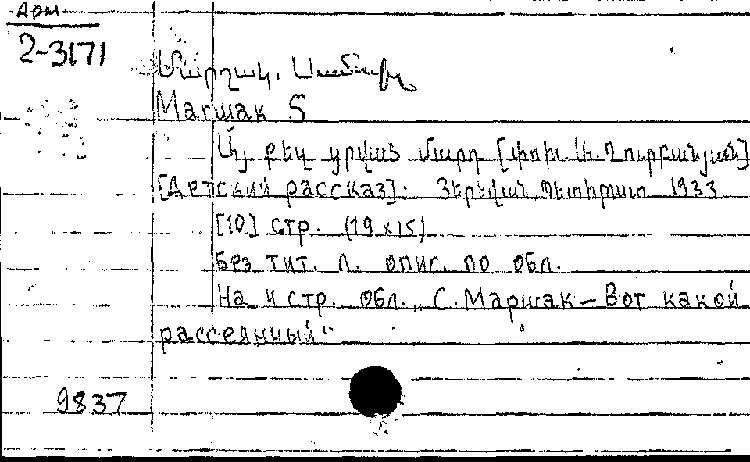 Арм
2-3171
Մարշակ, Սամուիլ
Маршак S
Այ քեզ ցրված մարդ [փոխ.
[Детский рассказ]. Յերեվան, Պետհրատ 1933
[10] стр. (19x15)
Без тит. л. опис. по обл.
На и стр. обл. „С. Маршак — Вот какой
рассеянный"
9837